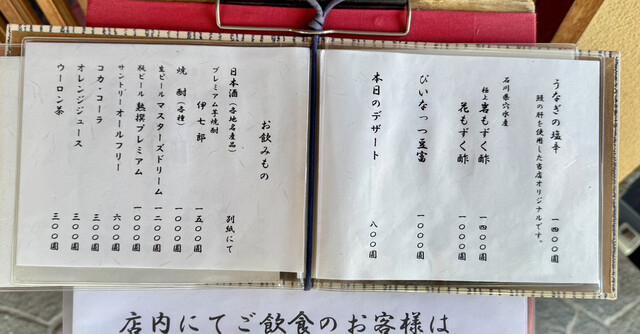 うなぎの塩辛
鰻の肝を使用した当店オリジナルです。
一四〇〇圓
石川県穴水産
極上 岩もずく酢
一四〇〇圓
花もずく酢
一〇〇〇圓
ぴいなっつ豆富
一〇〇〇圓
本日のデザート
八〇〇圓
お飲みもの
日本酒(各地名産品)
別紙にて
プレミアム芋焼酎
伊七郎
一五〇〇圓
焼酎(各種)
一〇〇〇圓
生ビール マスターズドリーム
一二〇〇圓
瓶ビール 熟撰プレミアム
一〇〇〇圓
サントリー オールフリー
六〇〇圓
コカ・コーラ
三〇〇圓
オレンジジュース
三〇〇圓
ウーロン茶
三〇〇圓
店内にてご飲食のお客様は